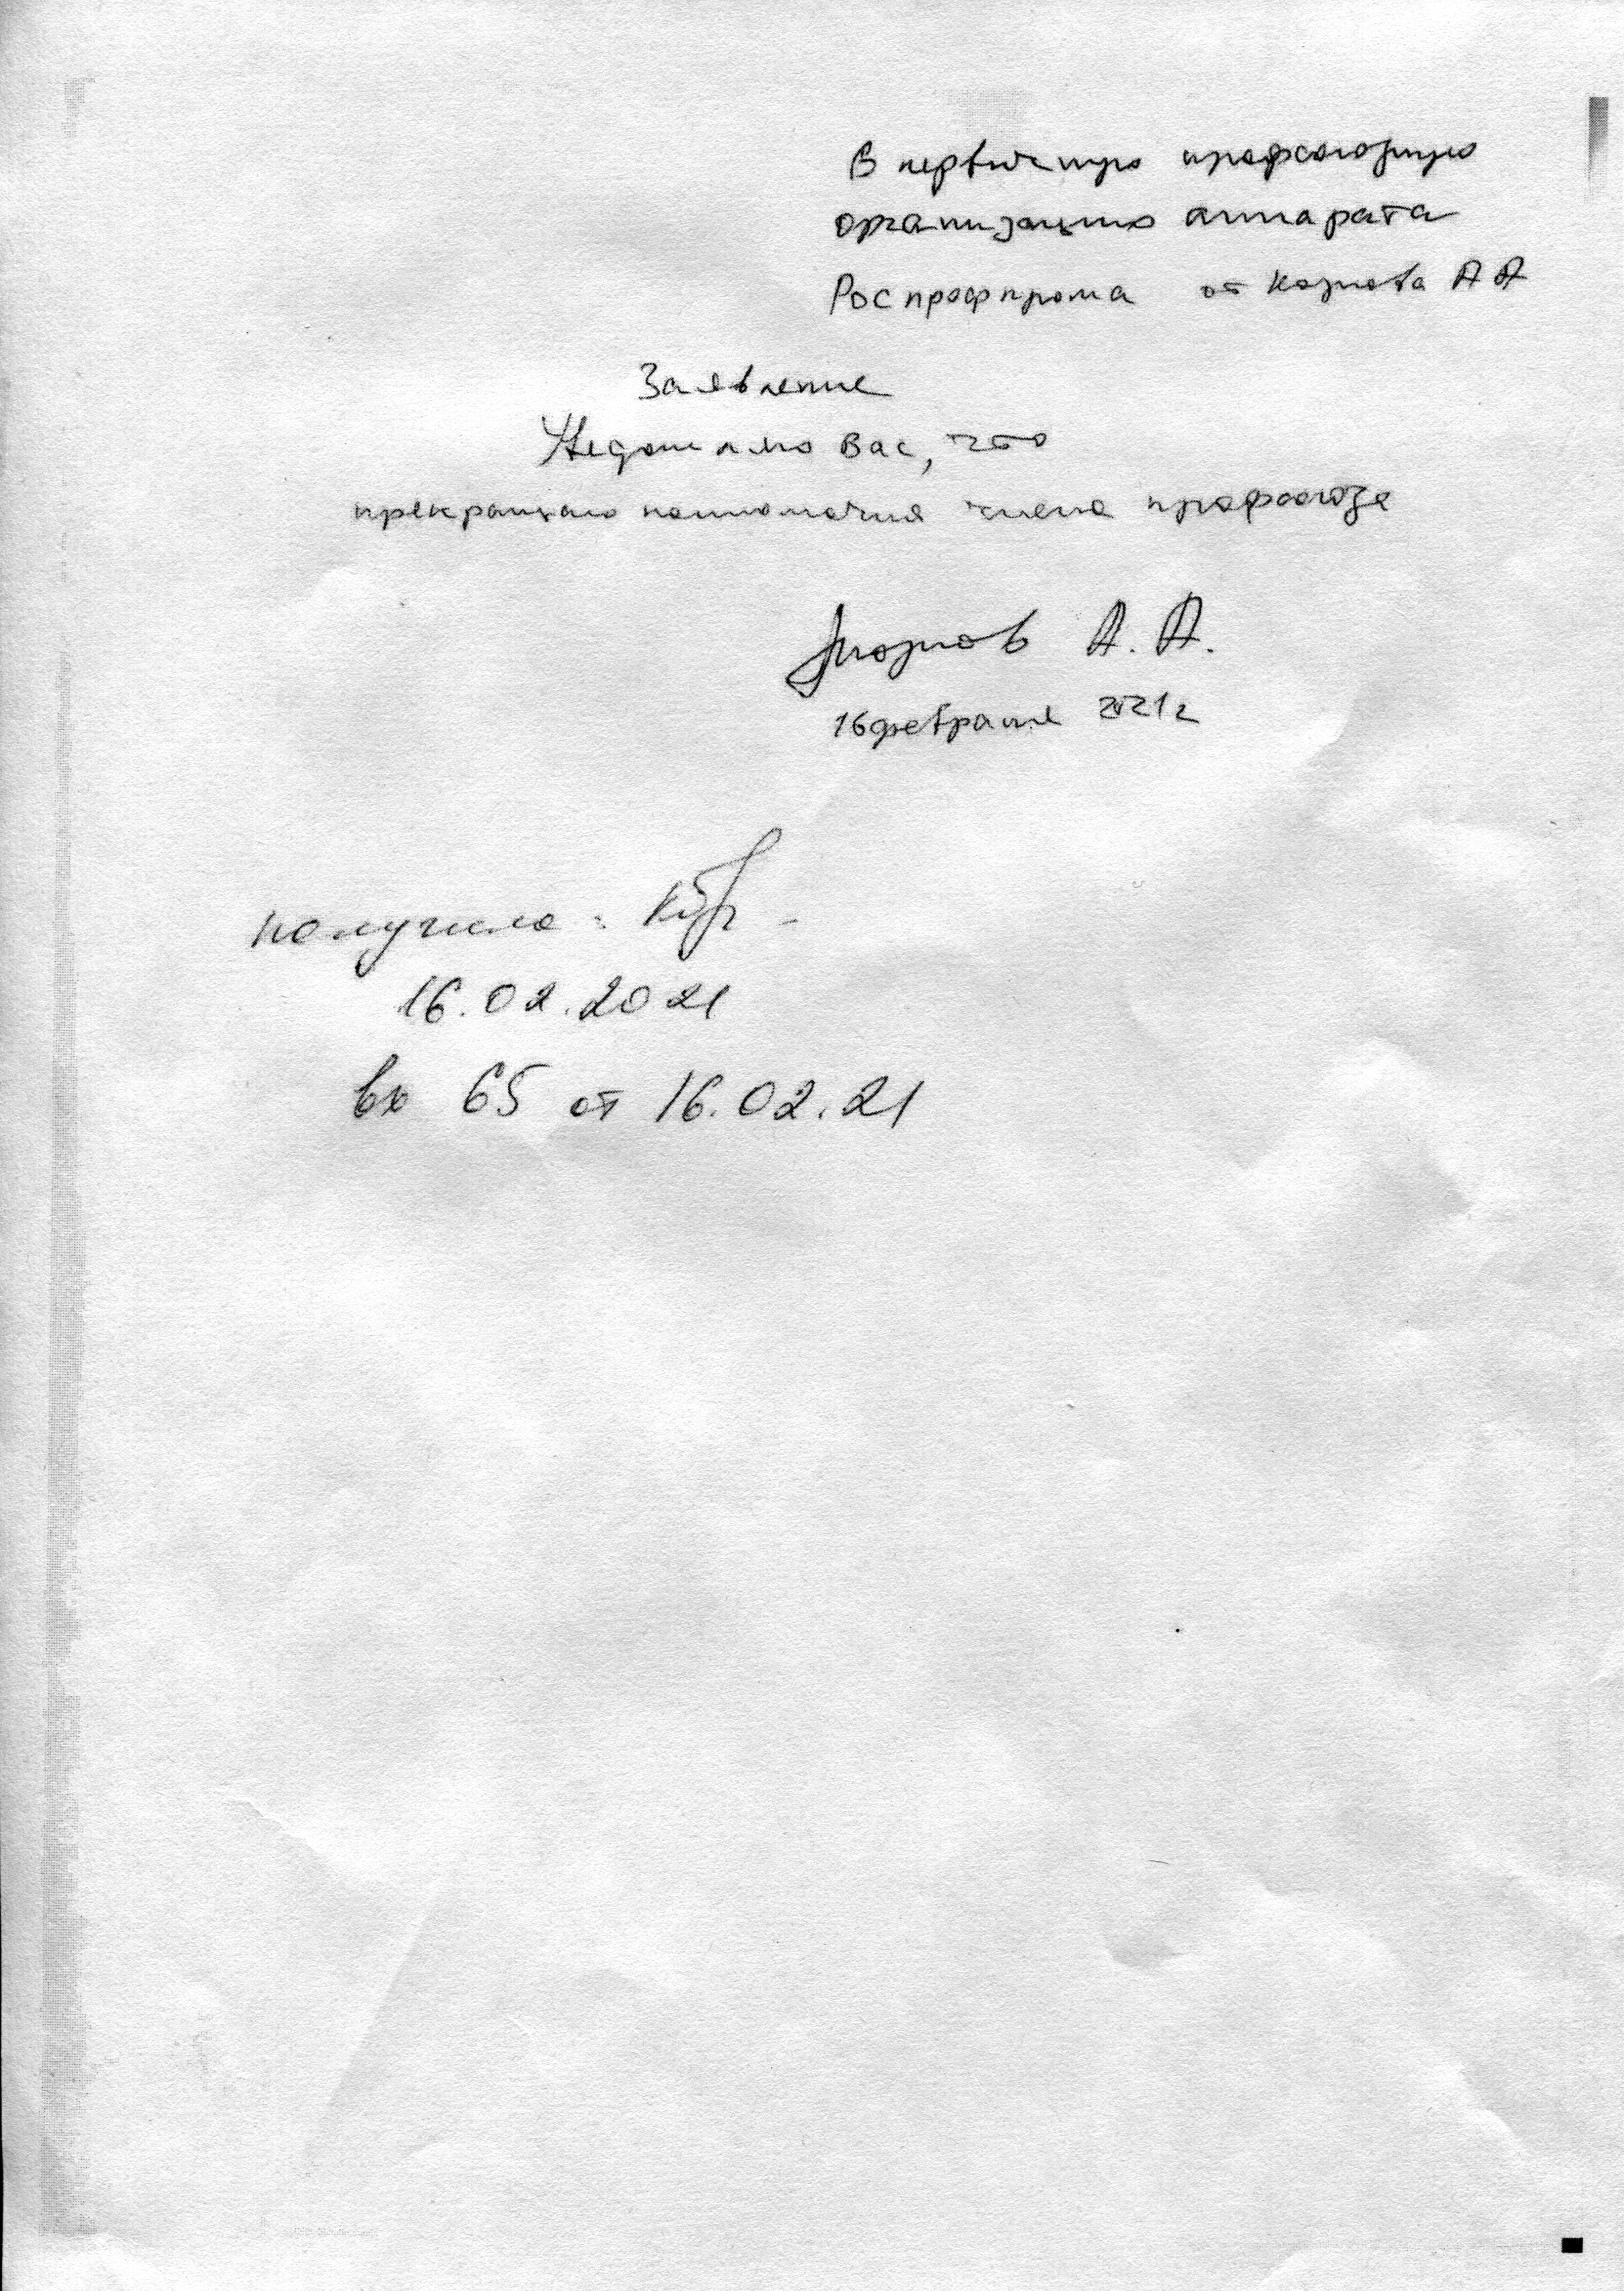 В первичную профсоюзную
организацию аппарата
Роспрофпрома от Козлова А А
Заявление
Уведомляю Вас, что
прекращаю полномочия члена профсоюза
А. А.
16 февраля 2021 г
получила:
16.02.2021
вх 65 от 16.02.21